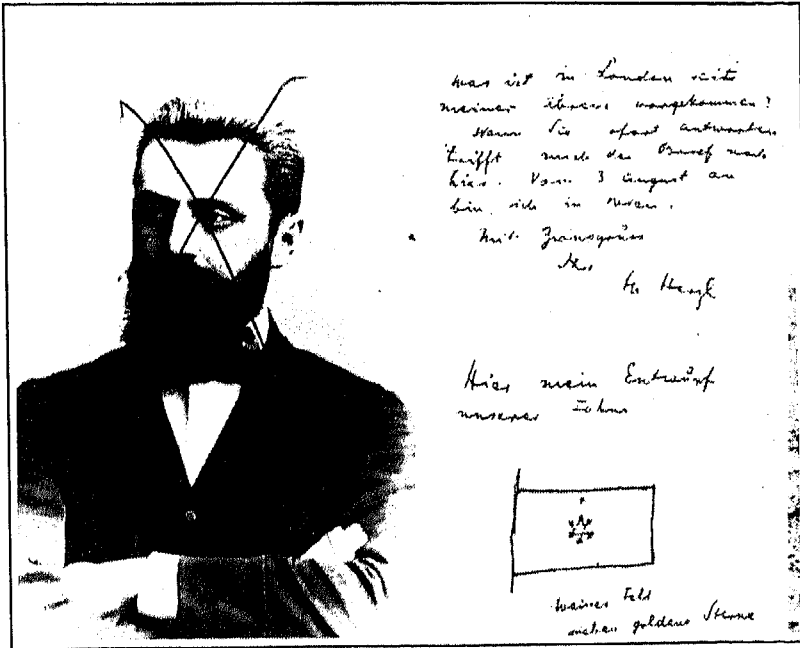 was ist in London seit
meiner Abreise vorgekommen?
Wenn Sie sofort antworten
trifft mich der Brief noch
hier. Vom 3 August an
bin ich in
Mit Zionsgruss
Ihr
Th Herzl
Hier mein Entwurf
unserer Fahne
weisses Feld
sieben goldene Sterne